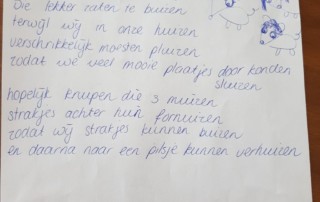 Die lekker zaten te buizen
terwijl wij in onze huizen
verschrikkelijk moesten pluizen
zodat we veel mooie plaatjes door konden
sluizen
hopelijk knupen die 3 muizen
strakjes achter hun fornuizen
zodat wij strakjes kunnen buizen
en daarna naar een pilsje kunnen verhuizen